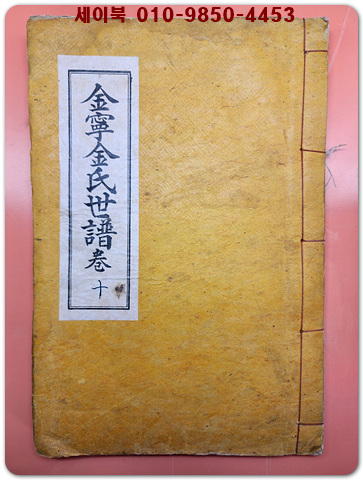 세이북 010-9850-4453
金寧金氏世譜卷十